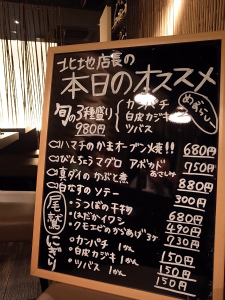 北地店長の
本日のオススメ
旬の3種盛り
980円
カンパチ
白皮カジキ
ツバス
めずらしい
ハマチのかまオーブン焼!! 680円
びんちょうマグロ アボカド 750円
真ダイのかぶと煮 880円
白なすのソテー 300円
・うつぼの干物 680円
・はだかイワシ 490円
・クモエビのからあげ3ケ 730円
尾鷲
にぎり
・カンパチ 1かん 150円
・白皮カジキ 1かん 150円
・ツバス 1かん 150円